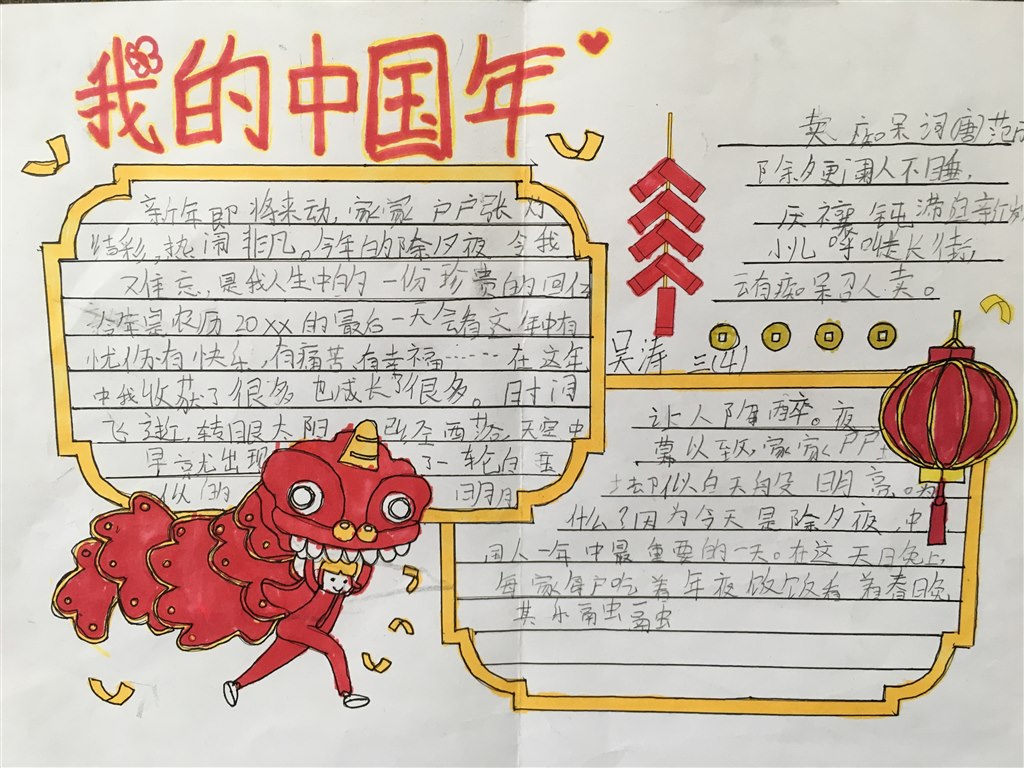 我的中国年
新年即将来动,家家户户张灯
结彩,热闹非凡。今年的除夕夜令我
又难忘,是我人生中的一份珍贵的回
农历20xx的最后一天
有快乐,有痛苦,有幸福……在这年
中我收获了很多也成长了很多。时间
飞逝,转眼太阳已经西落,天空中
早就出现了一轮白玉
似的明月
卖痴呆词唐范
除夕更阑人不睡,
厌禳钝滞迎新岁
小儿呼叫走长街,
云有痴呆召人卖。
吴涛 三(4)
让人陶醉。夜
幕以至,家家户户
却似白天般明亮。为
什么了因为今天是除夕夜,中
国人一年中最重要的一天。在这天日免上,
每家每户吃着年夜饭看着春日免
其乐融融